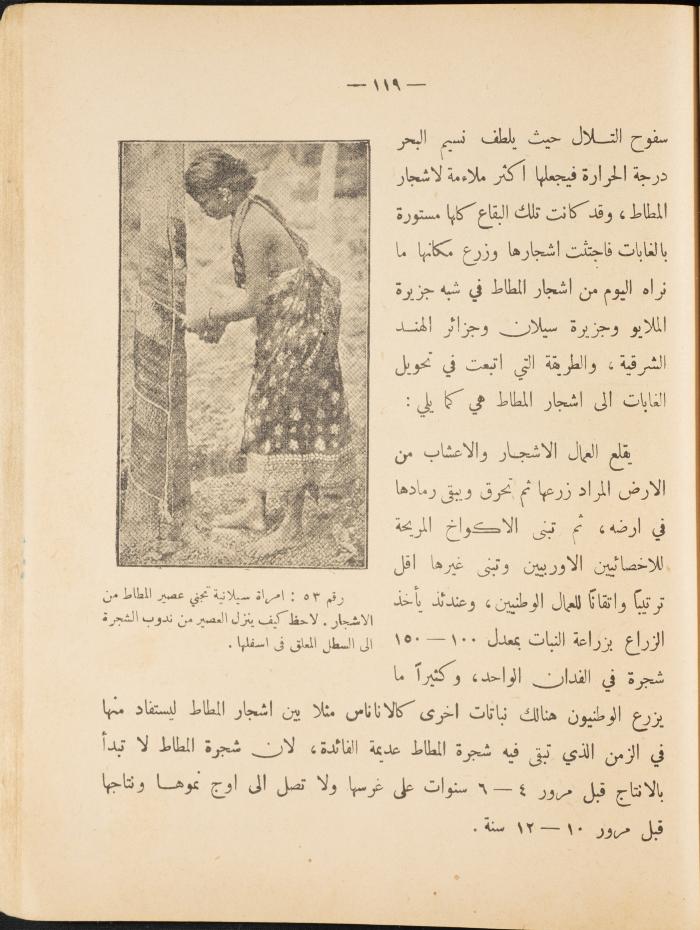 — ١١٩ —
سفوح التلال حيث يلطف نسيم البحر
درجة الحرارة فيجعلها اكثر ملاءمة لاشجار
المطاط، وقد كانت تلك البقاع كلها مستورة
بالغابات فاجتثت اشجارها وزرع مكانها ما
نراه اليوم من اشجار المطاط في شبه جزيرة
الملايو وجزيرة سيلان وجزائر الهند
الشرقية، والطريقة التي اتبعت في تحويل
الغابات الى اشجار المطاط هي كما يلي :
يقلع العمال الاشجار والاعشاب من
الارض المراد زرعها ثم تحرق ويبقى رمادها
في ارضه، ثم تبنى الاكواخ المريحة
للاخصائيين الاوربيين وتبنى غيرها اقل
ترتيباً واتقانًا للعمال الوطنيين، وعندئذ يأخذ
الزراع بزراعة النبات بمعدل ١٠٠ — ١٥٠
شجرة في الفدان الواحد، وكثيراً ما
يزرع الوطنيون هنالك نباتات اخرى كالاناناس مثلا بين اشجار المطاط ليستفاد منها
في الزمن الذي تبقى فيه شجرة المطاط عديمة الفائدة، لان شجرة المطاط لا تبدأ
بالانتاج قبل مرور ٤ — ٦ سنوات على غرسها ولا تصل الى اوج نموها ونتاجها
قبل مرور ١٠ — ١٢ سنة .
رقم ٥٣ : امراة سيلانية تجني عصير المطاط من
الاشجار . لاحظ كيف ينزل العصير من ندوب الشجرة
الى السطل المعلق فى اسفلها .